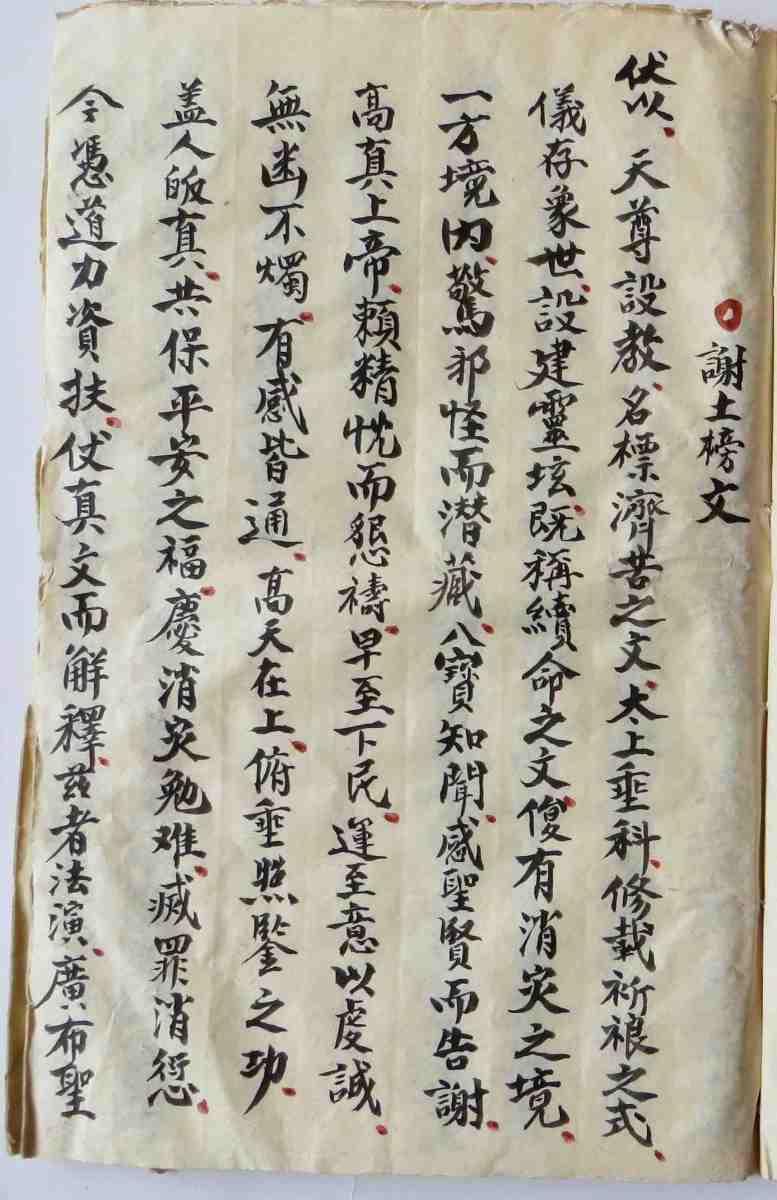 謝土榜文
伏以、天尊設教、名標濟苦之文、太上垂科、修載祈禳之式、
儀存象世、設建靈坛、既稱續命之文、復有消灾之境、
一方境内、驚邪怪而潜藏、八寳知聞、感聖賢而告謝、
高真上帝、頼精忱而懇禱、早至下民、運至意以虔誠、
無幽不燭、有感皆通、高天在上、俯垂照鑒之功、
盖人皈真、共保平安之福、慶消灾勉难、滅罪消愆、
今憑道力資扶、仗真文而解釋、兹者法演、廣布聖